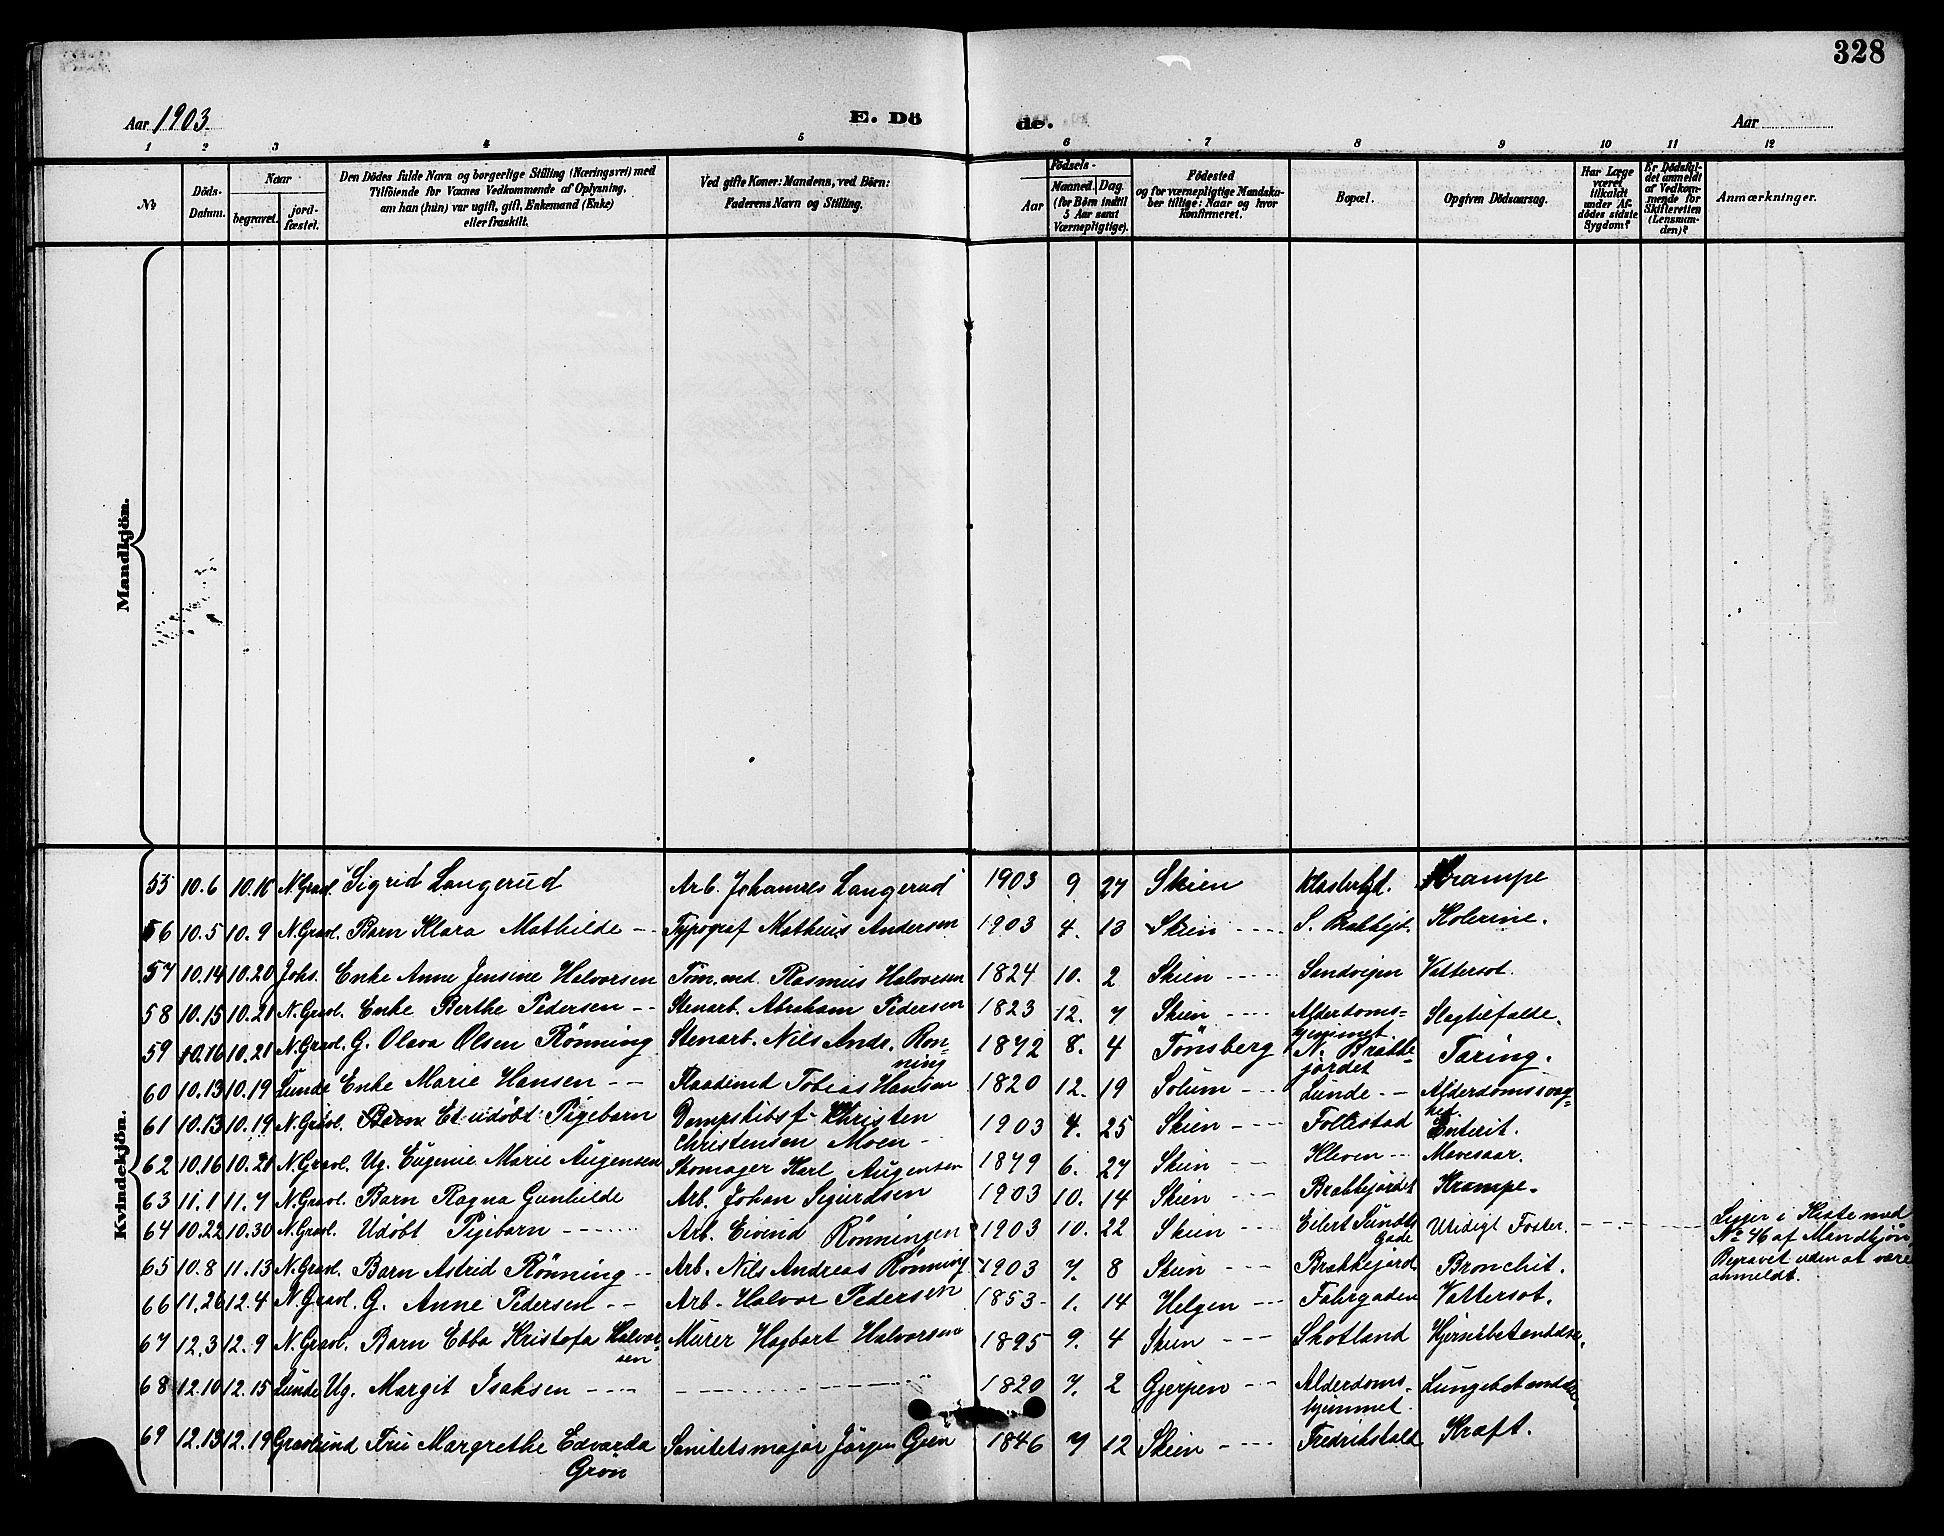 328
Aar 1903. E. Dö de. Aar
1 2 3 4 5 6 7 8 9 10 11 12
№
Döds-Datum.
Naar begravet. jord-fæstet.
Den Dödes fulde Navn og borgerlige Stilling (Næringsvei) med
Tilföiende for Voxnes Vedkommende af Oplysning,
om han (hun) var ugift, gift, Enkemand (Enke)
eller fraskilt.
Ved gifte Koner: Mandens, ved Börn:
Faderens Navn og Stilling.
Födsels-
Aar Maaned. Dag.
(for Börn indtil
5 Aar samt
Værnepligtige).
Födested
og for værnepligtige Mandska-
ber tillige: Naar og hvor
Konfirmeret.
Bopæl.
Opgiven Dödsaarsag.
Har Læge
været
tilkaldt
under Af-
dödes sidste
Sygdom?
Er Dödsfal-
det anmeldt
af Vedkom-
mende for
Skifteretten
(Lensman-
den)?
Anmærkninger.
Mandkjön.
Kvindekjön.
55 10.6 10.10 N.Gravl. Sigrid Langerud Arb. Johannes Langerud 1903 9 27 Skien Klosterfjd. Krampe
56 10.5 10.9 N.Gravl. Barn Klara Mathilde -- Typograf Matheus Andersen 1903 4. 13 Skien ---- S. Brakkejd. Kolerine.
57 10.14 10.20 Johs. Enke Anne Jensine Halvorsen Töm.md. Rasmus Halvorsen 1824 10. 2 Skien ---- Sandvigen Vattersot.
58 10.15 10.21 N.Gravl. Enke Berthe Pedersen -- Stenarb. Abraham Pedersen 1823 12. 7 Skien ---- Alderdoms-
hjemmet. Slagtilfælde.
59 10.16 10.21 N.Gravl. G. Olava Olsen Rönning Stenarb. Nils Andr. Rön-
ning 1872 8. 4 Tönsberg N. Brakke-
jordet Tæring.
60 10.13 10.19 Lunde Enke Marie Hansen -- Raadmd Tobias Hansen 1820 12. 19 Solum --- Lunde -- Alderdomssvag-
hed.
61 10.13 10.19 N.Gravl. Barn Et udöbt Pigebarn Dampskibsf. Christen
Christensen Moen - 1903 4. 25 Skien --- Follestad Enterit.
62 10.16 10.21 N.Gravl. Ug. Eugenie Marie Augensen Skomager Karl Augensen 1879 6. 27 Skien -- Kleven --- Mavesaar.
63 11.1 11.7 N.Gravl. Barn Ragna Gunhilde Arb. Johan Sigurdsen 1903 10. 14 Skien -- Brakkejordet Krampe.
64 10.22 10.30 N.Gravl. Udöbt Pigebarn ------ Arb. Eivind Rönningen 1903 10. 22 Skien -- Eilert Sundts
Gade Utidigt Foster. Ligger i Kiste med
№ 46 af Mandkjön
65 10.8 11.13 N.Gravl. Barn Astrid Rönning -- Arb. Nils Andreas Rönning 1903 7. 8 Skien -- Brakkejord Bronchit. Begravet uden at være
anmeldt.
66 11.26 12.4 N.Gravl. G. Anne Pedersen -- Arb. Halvor Pedersen 1853 1. 14 Helgen --- Fahrgaden Vattersot.
67 12.3 12.9 N.Gravl. Barn Ebba Kristofa Halvor-
sen Murer Hagbart Halvorsen 1895 9. 4 Skien --- Skotland Hjernebetændelse.
68 12.10 12.15 Lunde Ug. Margit Isaksen ---- 1820 7. 2 Gjerpen -- Alderdoms-
hjemmet. Lungebetændelse.
69 12.13 12.19 Gravlund Fru Margrethe Edvarda
Grön Sanitetsmajor Jörgen Grön 1846 7 12 Skien ---- Fredrikstald Kræft.